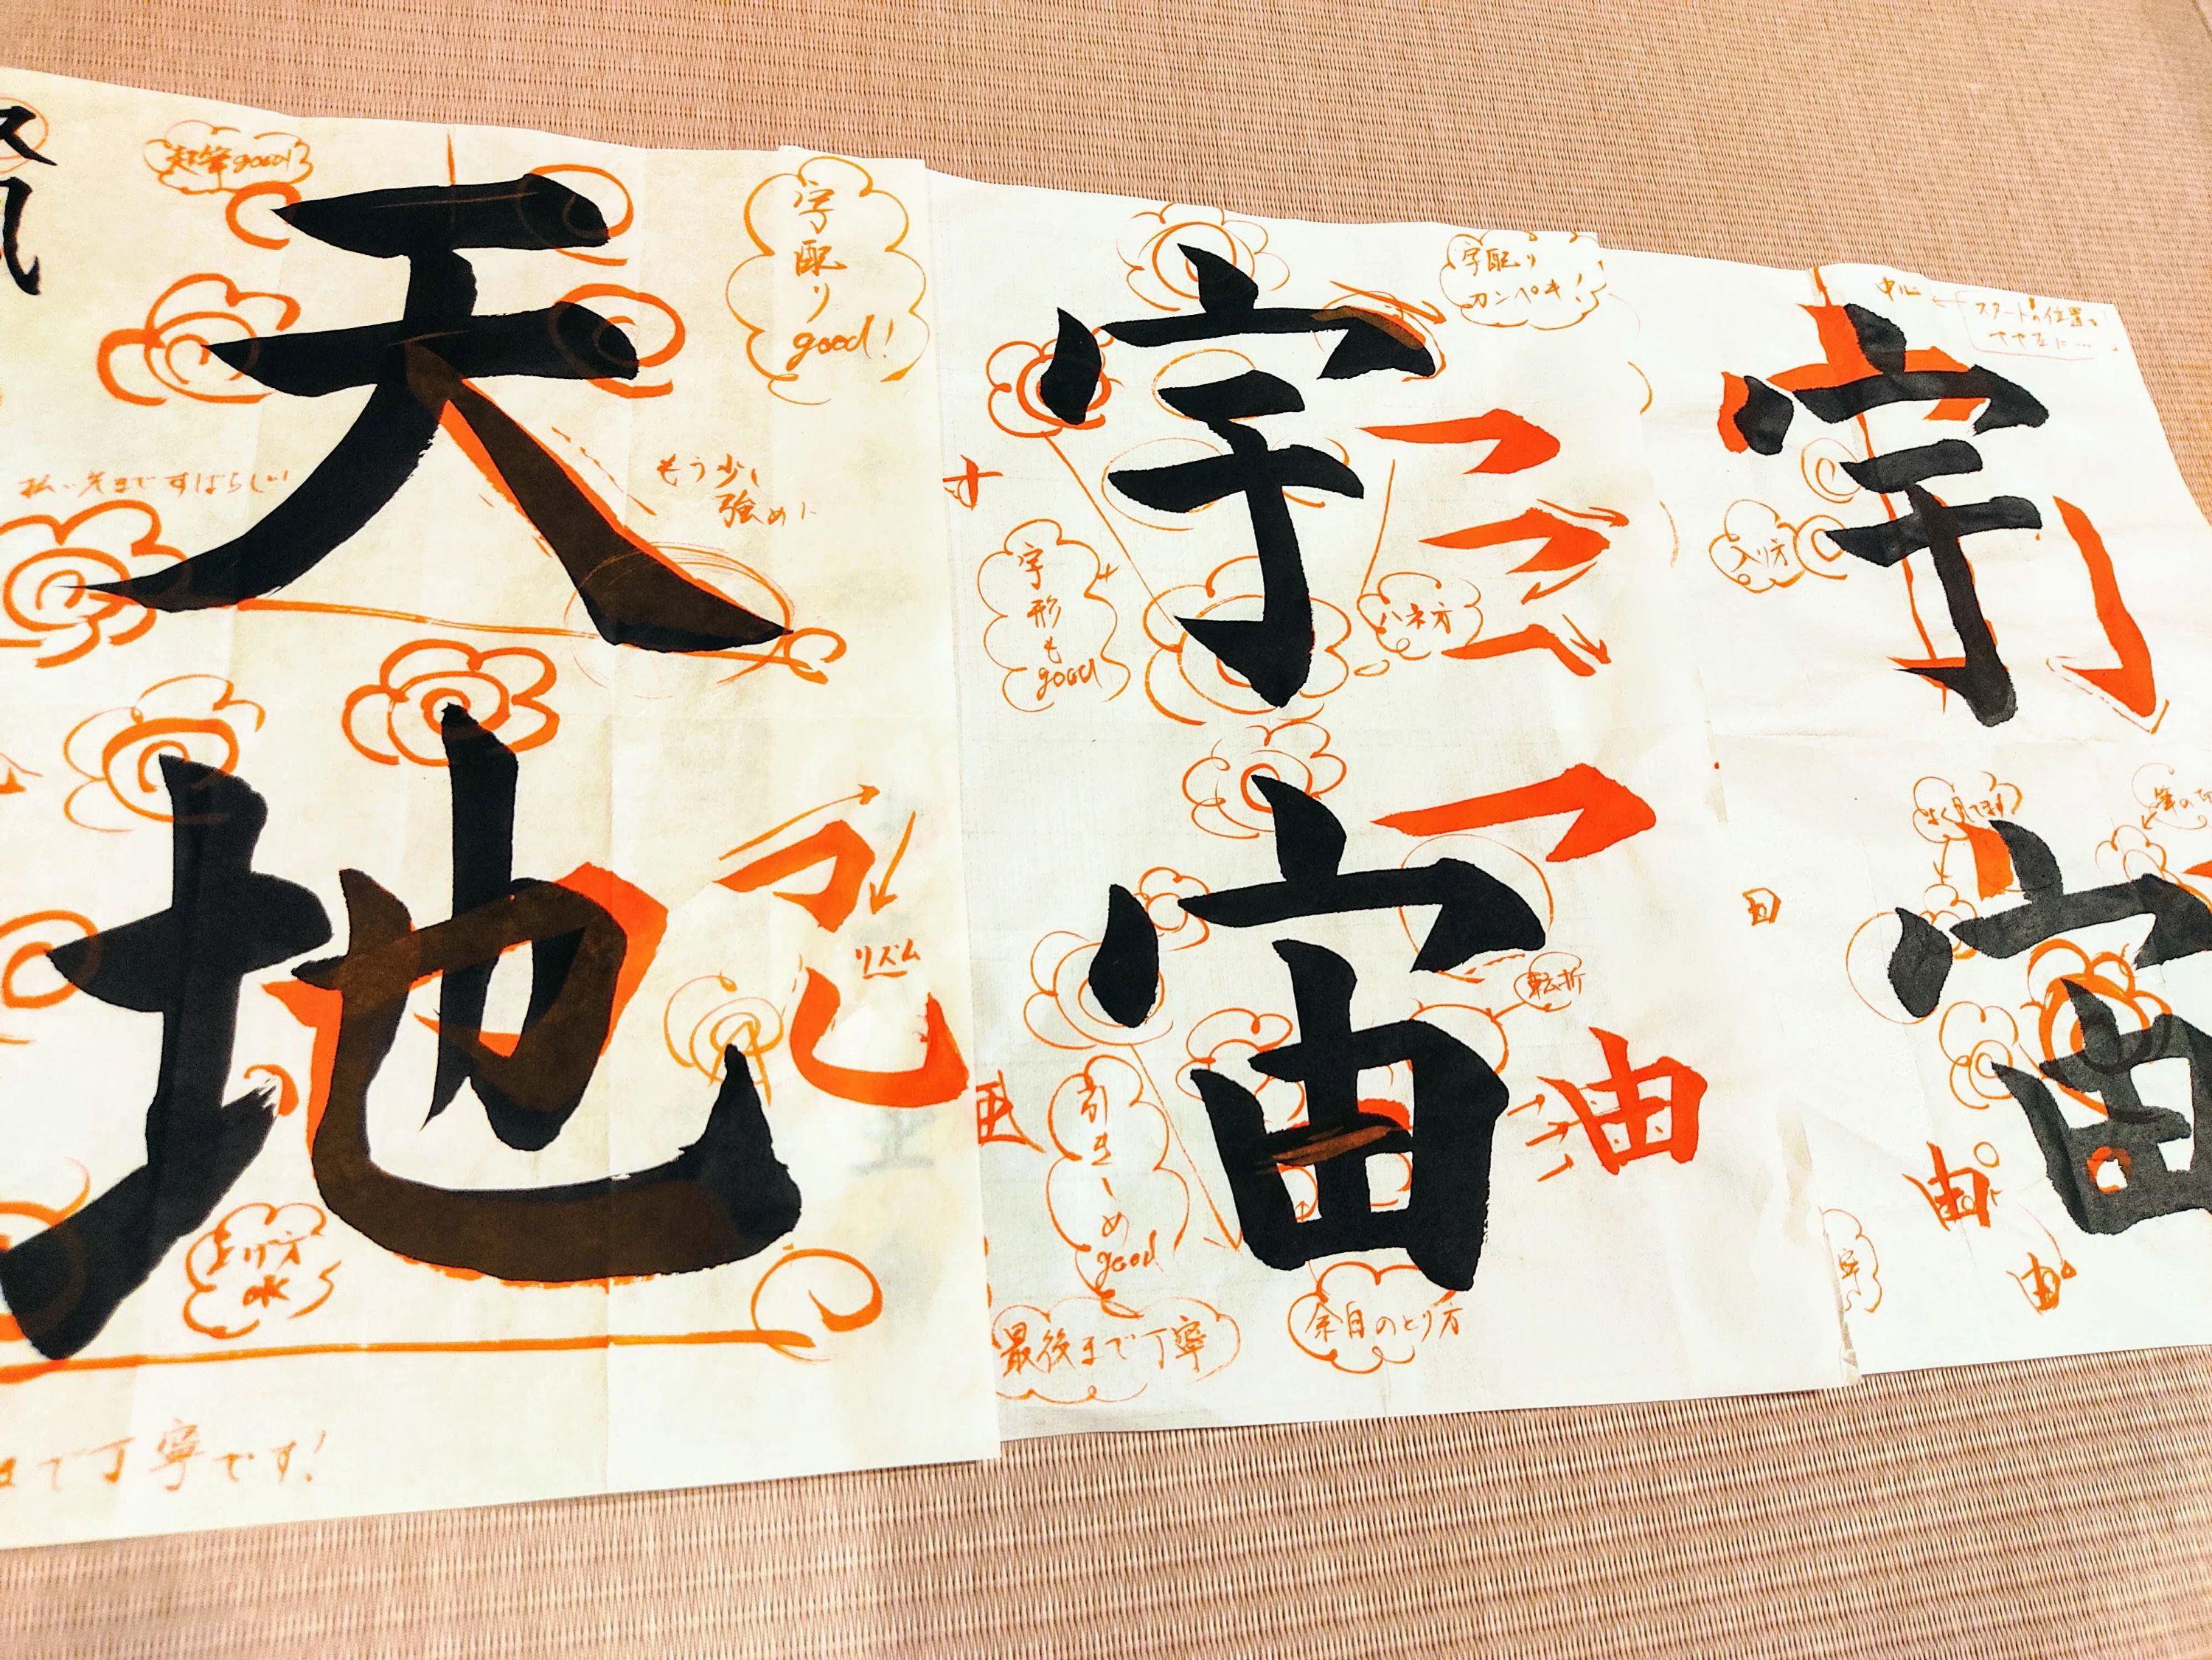 天
地
起筆good!
字配りgood!
払い先まですばらしい!
もう少し
強めに
リズム
上げ方
OK
まで丁寧です!
宇
宙
字配り
カンペキ!
字形も
good
ハネ方
転折
引きしめ
good
最後まで丁寧
余白のとり方
由
宇
宙
中心
スタートの位置を
やや左に…
入り方
よく見てます
由
由